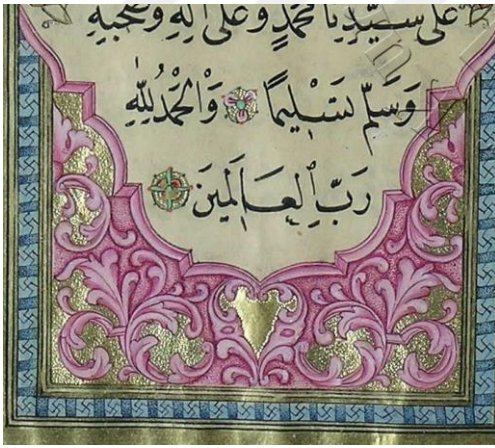 عَلٰى سَيِّدِنَا مُحَمَّدٍ وَعَلٰى اٰلِهِ وَصَحْبِهِ
وَسَلَّمَ تَسْلِيمًا وَالْحَمْدُ لِلّٰهِ
رَبِّ الْعَالَمِينَ